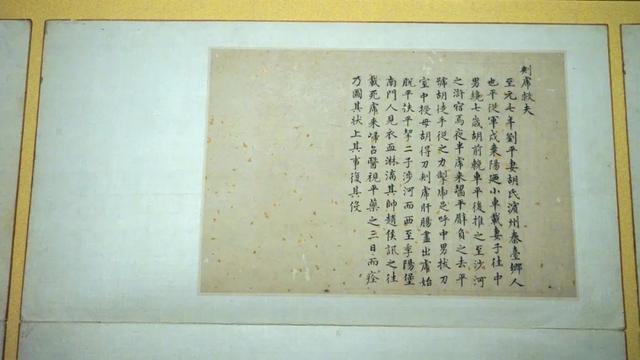 刲虎救夫
至元七年劉平妻胡氏濱州秦臺鄉人
也平從軍戍棗陽廼小車載妻子往中
男纔七歲胡前輓車平後推之至沙河
之滸宿焉夜半虎来齧平髀負之去平
號胡徒手從之力掣虎足呼中男拔刀
室中授母胡得刀刲虎肝腸盡出虎始
脫平扶平挈二子涉河而西至季陽堡
南門人見衣血淋漓其帥趙侯訊之往
載死虎来歸召醫視平藥之三日而痊
乃圖其狀上其事復其役